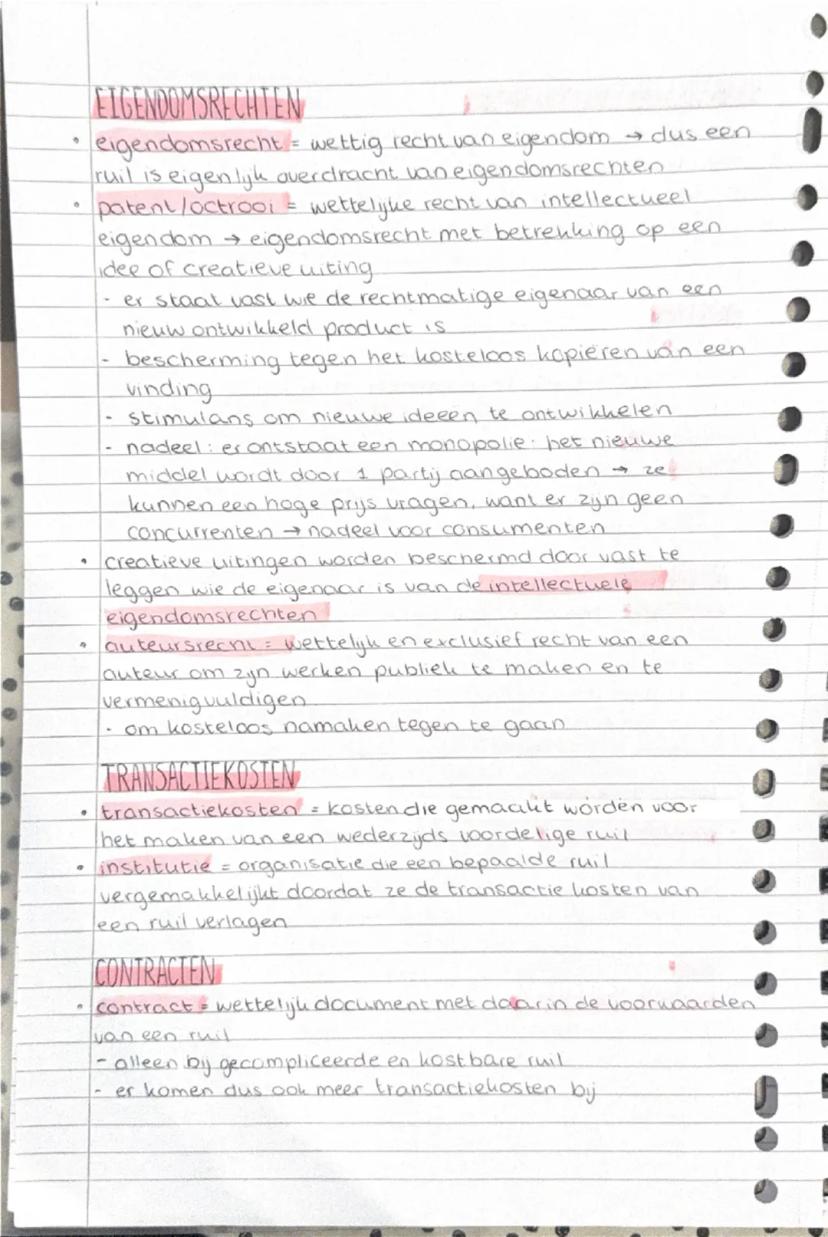 EIGENDOMSRECHTEN
• eigendomsrecht = wettig recht van eigendom → dus een
ruil is eigenlijk overdracht van eigendomsrechten
• patent/octrooi = wettelijke recht van intellectueel
eigendom → eigendomsrecht met betrekking op een
idee of creatieve uiting
- er staat vast wie de rechtmatige eigenaar van een
nieuw ontwikkeld product is
- bescherming tegen het kosteloos kopiëren van een
vinding
- stimulans om nieuwe ideeën te ontwikkelen
- nadeel: er ontstaat een monopolie: het nieuwe
middel wordt door 1 partij aangeboden → ze
kunnen een hoge prijs vragen, want er zijn geen
concurrenten → nadeel voor consumenten
• creatieve uitingen worden beschermd door vast te
leggen wie de eigenaar is van de intellectuele
eigendomsrechten
• auteursrecht = wettelijk en exclusief recht van een
auteur om zijn werken publiek te maken en te
vermenigvuldigen
- om kosteloos namaken tegen te gaan
TRANSACTIEKOSTEN
• transactiekosten = kosten die gemaakt worden voor
het maken van een wederzijds voordelige ruil
• institutie = organisatie die een bepaalde ruil
vergemakkelijkt doordat ze de transactie kosten van
een ruil verlagen
CONTRACTEN
• contract = wettelijk document met daarin de voorwaarden
van een ruil
- alleen bij gecompliceerde en kostbare ruil
- er komen dus ook meer transactiekosten bij